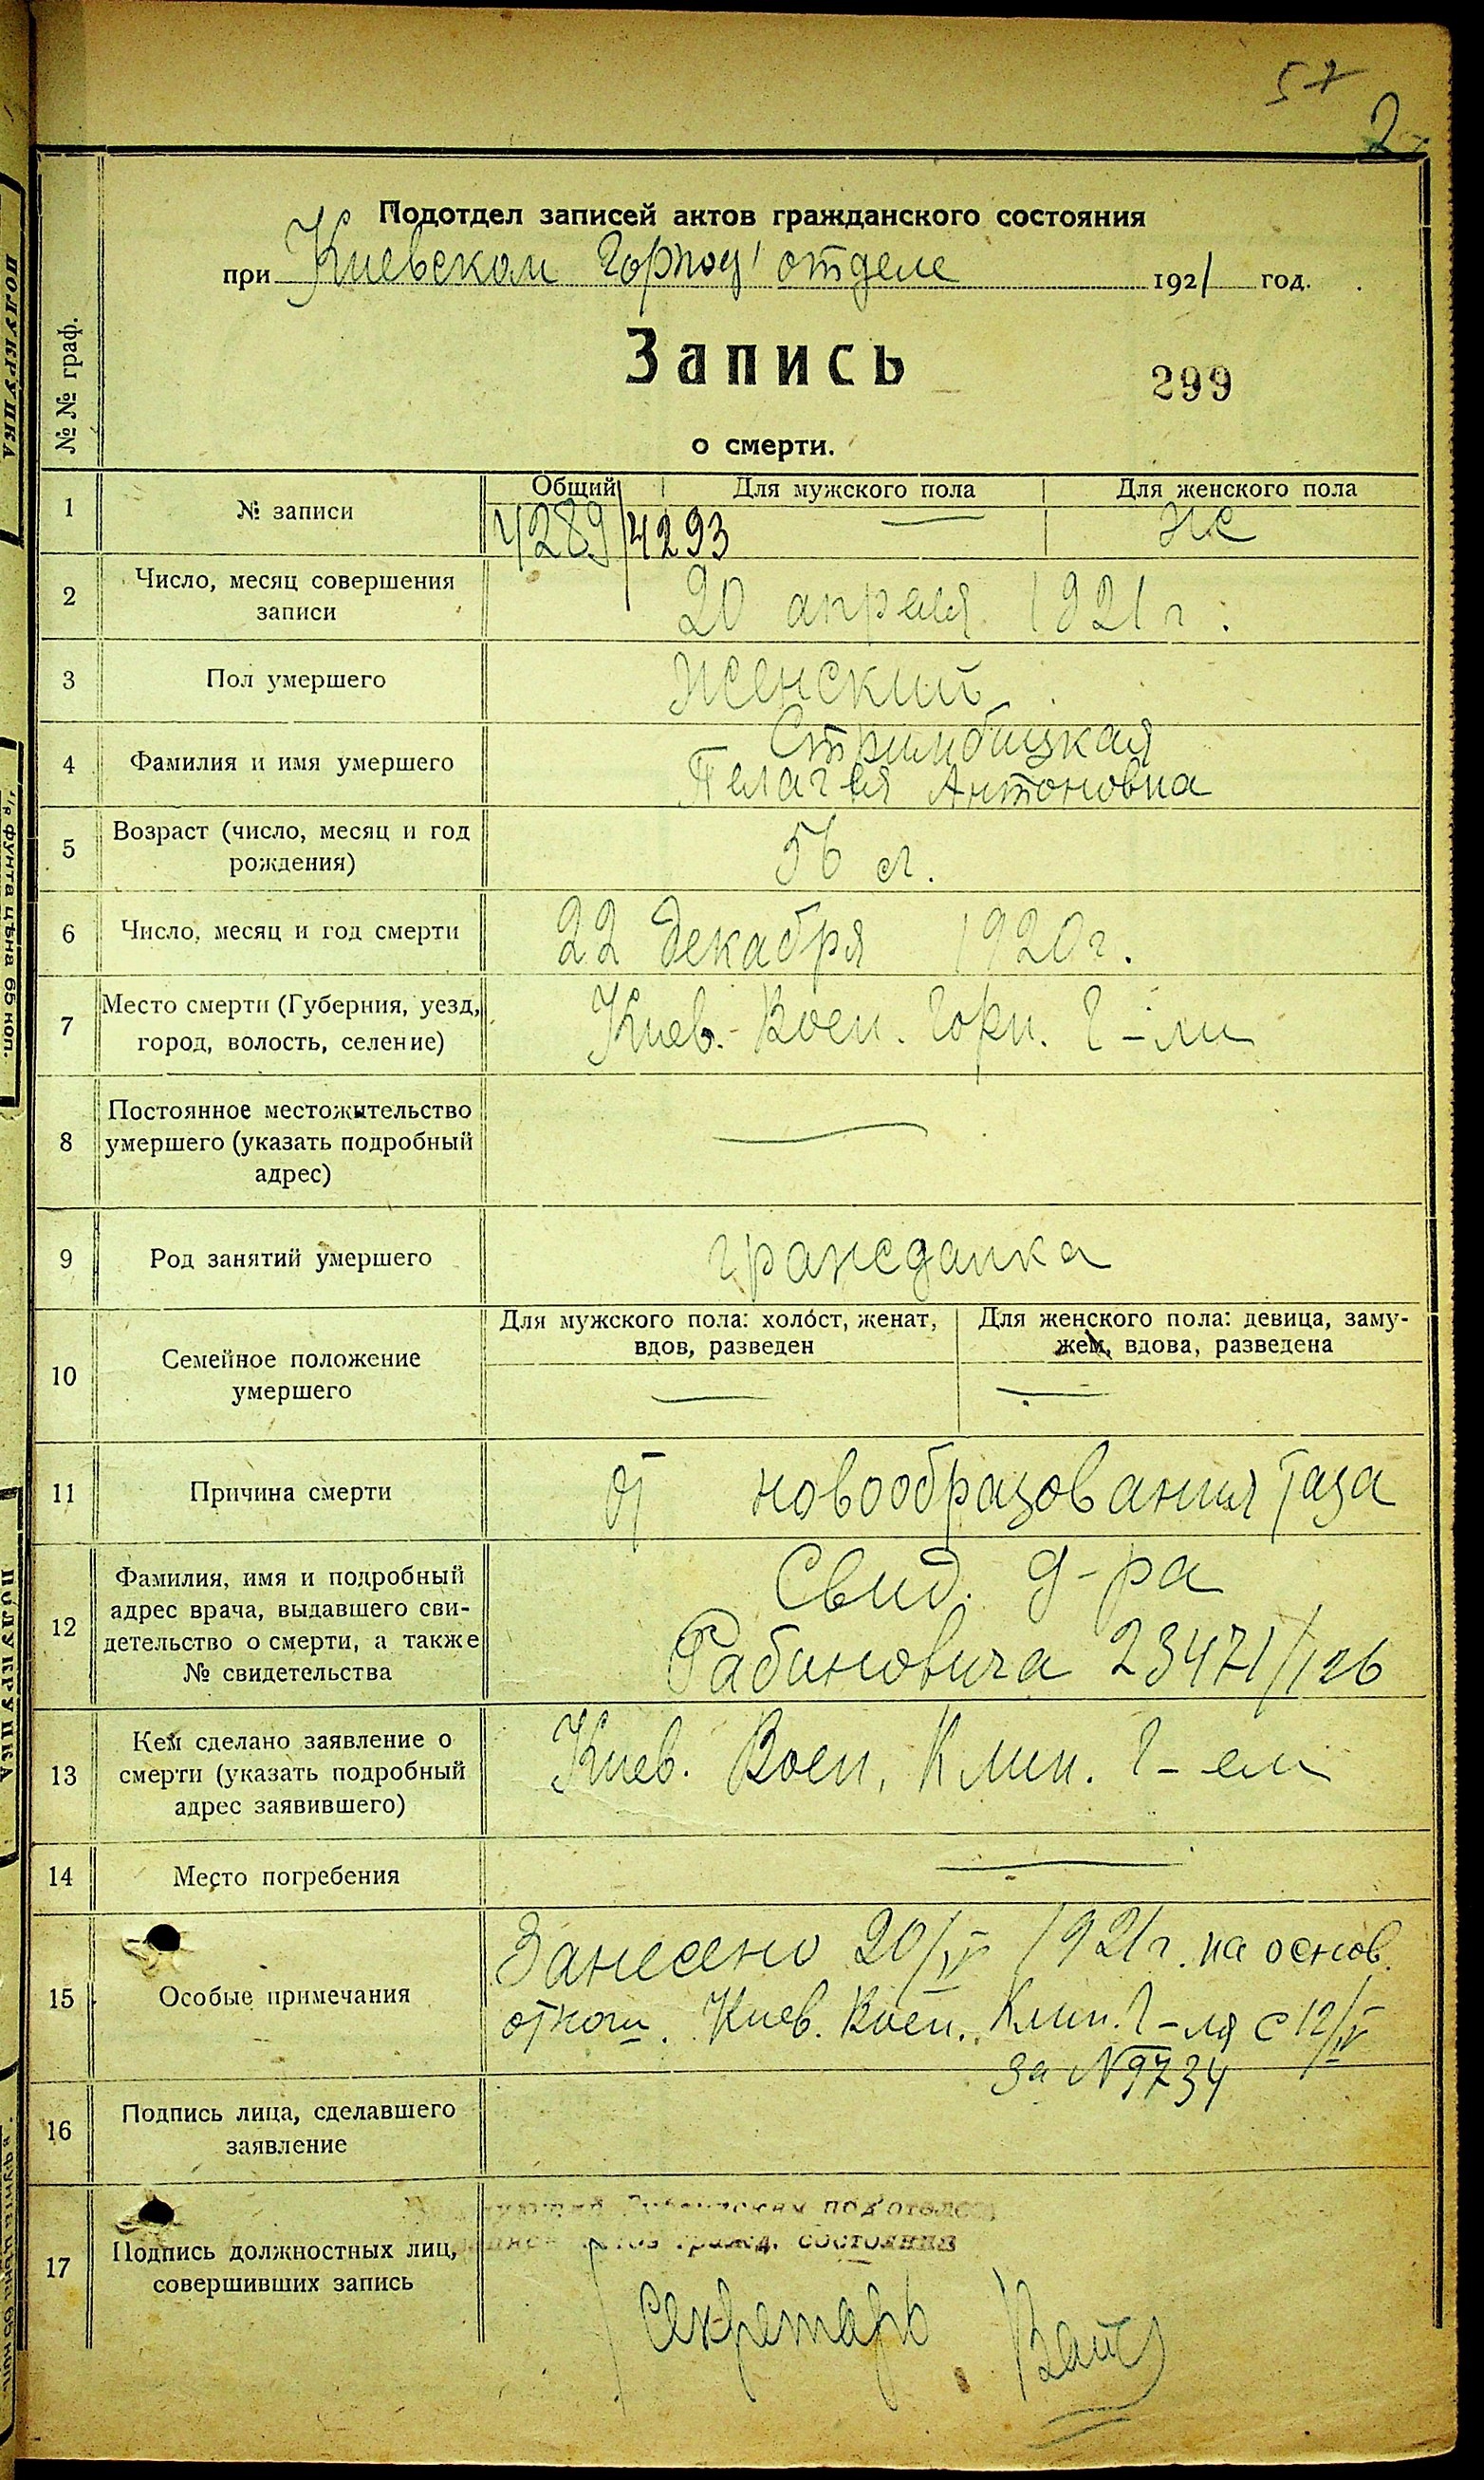 57
2
Подотдел записей актов гражданского состояния
при Киевском Горпод отделе 1921 год.
№№ граф.
Запись
299
о смерти.
1 № записи Общий Для мужского пола Для женского пола
4289/4293 — Же
2 Число, месяц совершения записи
20 апреля 1921 г.
3 Пол умершего Женский
4 Фамилия и имя умершего
Стримбицкая
Пелагея Антоновна
5 Возраст (число, месяц и год рождения)
56 л.
6 Число, месяц и год смерти 22 декабря 1920 г.
7 Место смерти (Губерния, уезд,
город, волость, селение)
Киев. Воен. Горп. Г-ли
8 Постоянное местожительство
умершего (указать подробный
адрес)
—
9 Род занятий умершего гражданка
10 Семейное положение
умершего
Для мужского пола: холост, женат,
вдов, разведен
—
Для женского пола: девица, заму-
жем, вдова, разведена
—
11 Причина смерти От новообразования таза
12 Фамилия, имя и подробный
адрес врача, выдавшего сви-
детельство о смерти, а также
№ свидетельства
Свид. д-ра
Рабиновича 23471/126
13 Кем сделано заявление о
смерти (указать подробный
адрес заявившего)
Киев. Воен. Клин. Г-ем
14 Место погребения —
15 Особые примечания
Занесено 20/IV 1921 г. на основ.
отнош. Киев. Воен. Клин. Г-ля с 12/IV
за N 9734
16 Подпись лица, сделавшего
заявление
17 Подпись должностных лиц,
совершивших запись
подотделом
актов гражд. состояния
Секретарь
ПОЛУКРУПКА
фунта цѣна 65 коп.
ПОЛУКРУПКА